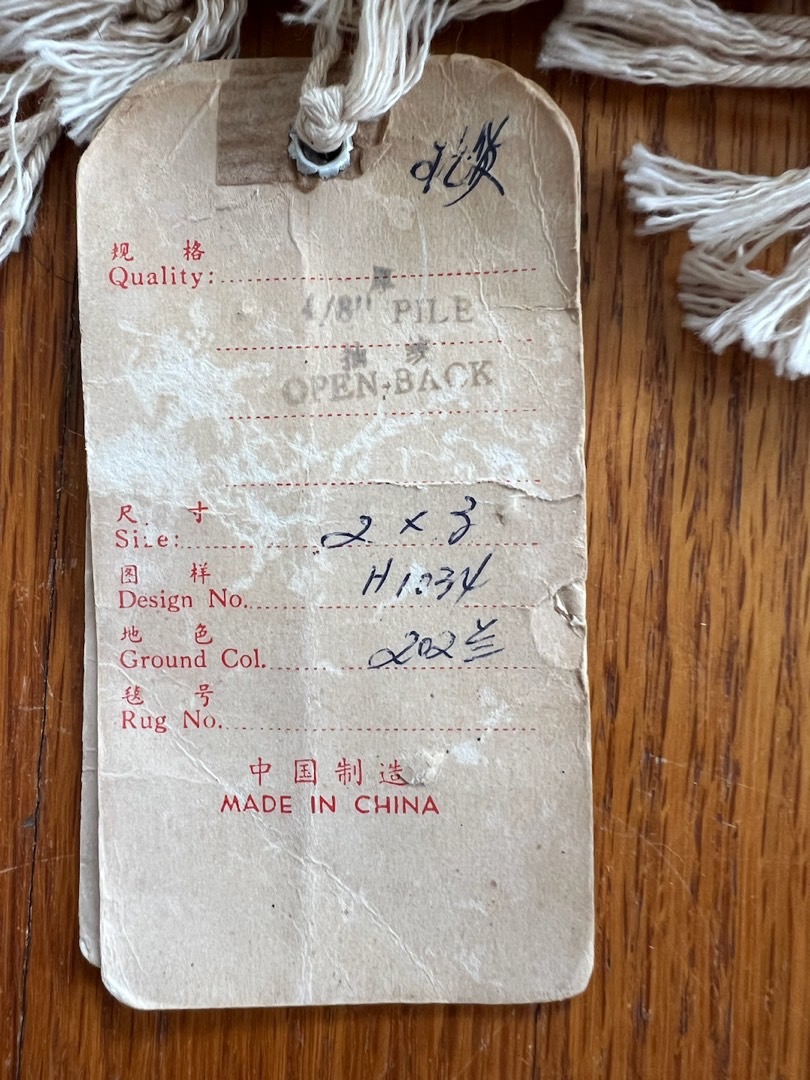 规 格
Quality:
厚
4/8" PILE
抽 绞
OPEN-BACK
尺 寸
Size: 2 x 3
图 样
Design No. H1034
地 色
Ground Col. 202兰
毯 号
Rug No.
中国制造
MADE IN CHINA